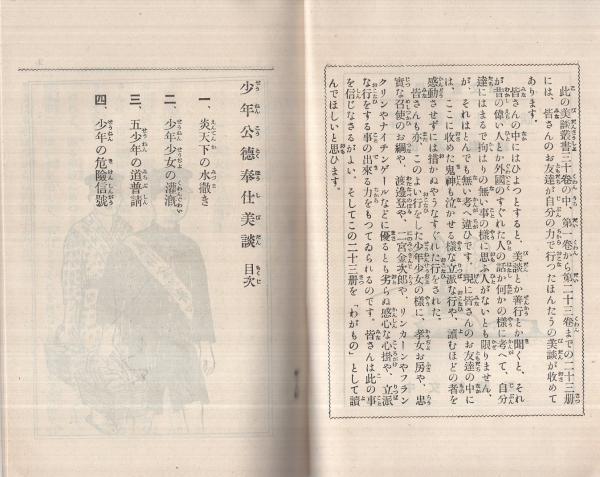 此の美談叢書三十卷の中、第一卷から第二十三卷までの二十三册
には、皆さんのお友達が自分の力で行つたほんたうの美談が收めて
あります。
皆さんの中にはひよつとすると、美談とか善行とか聞くと、それ
が昔の偉い人とか外國のすぐれた人の話か何かの樣に考へて、自分
達にはまるで拘はりの無い事の樣に思ふ人がないとも限りません。
が、それはとんでも無い考へ違ひです。現に皆さんのお友達の中に
は、ここに收めた鬼神も泣かせる樣な立派な行や、讀むほどの者を
感動させずには措かぬやうなすぐれた行をされた。
皆さんも亦、このよい行をした少年少女の樣に、孝女お房や、忠
實な召使のお綱や、渡邊登や、二宮金次郎や、リンカーンやフラン
クリンやナイチンゲールなどに優るとも劣らぬ感心な心掛や、立派
な行をする事の出來る力をもつてゐられるのです。皆さんは此の事
を信じなさるがよい。そしてこの二十三册を「わがもの」として讀
んでほしいと思ひます。
少年公德奉仕美談 目次
一、炎天下の水撒き
二、少年少女の灌漑
三、五少年の道普請
四、少年の危險信號